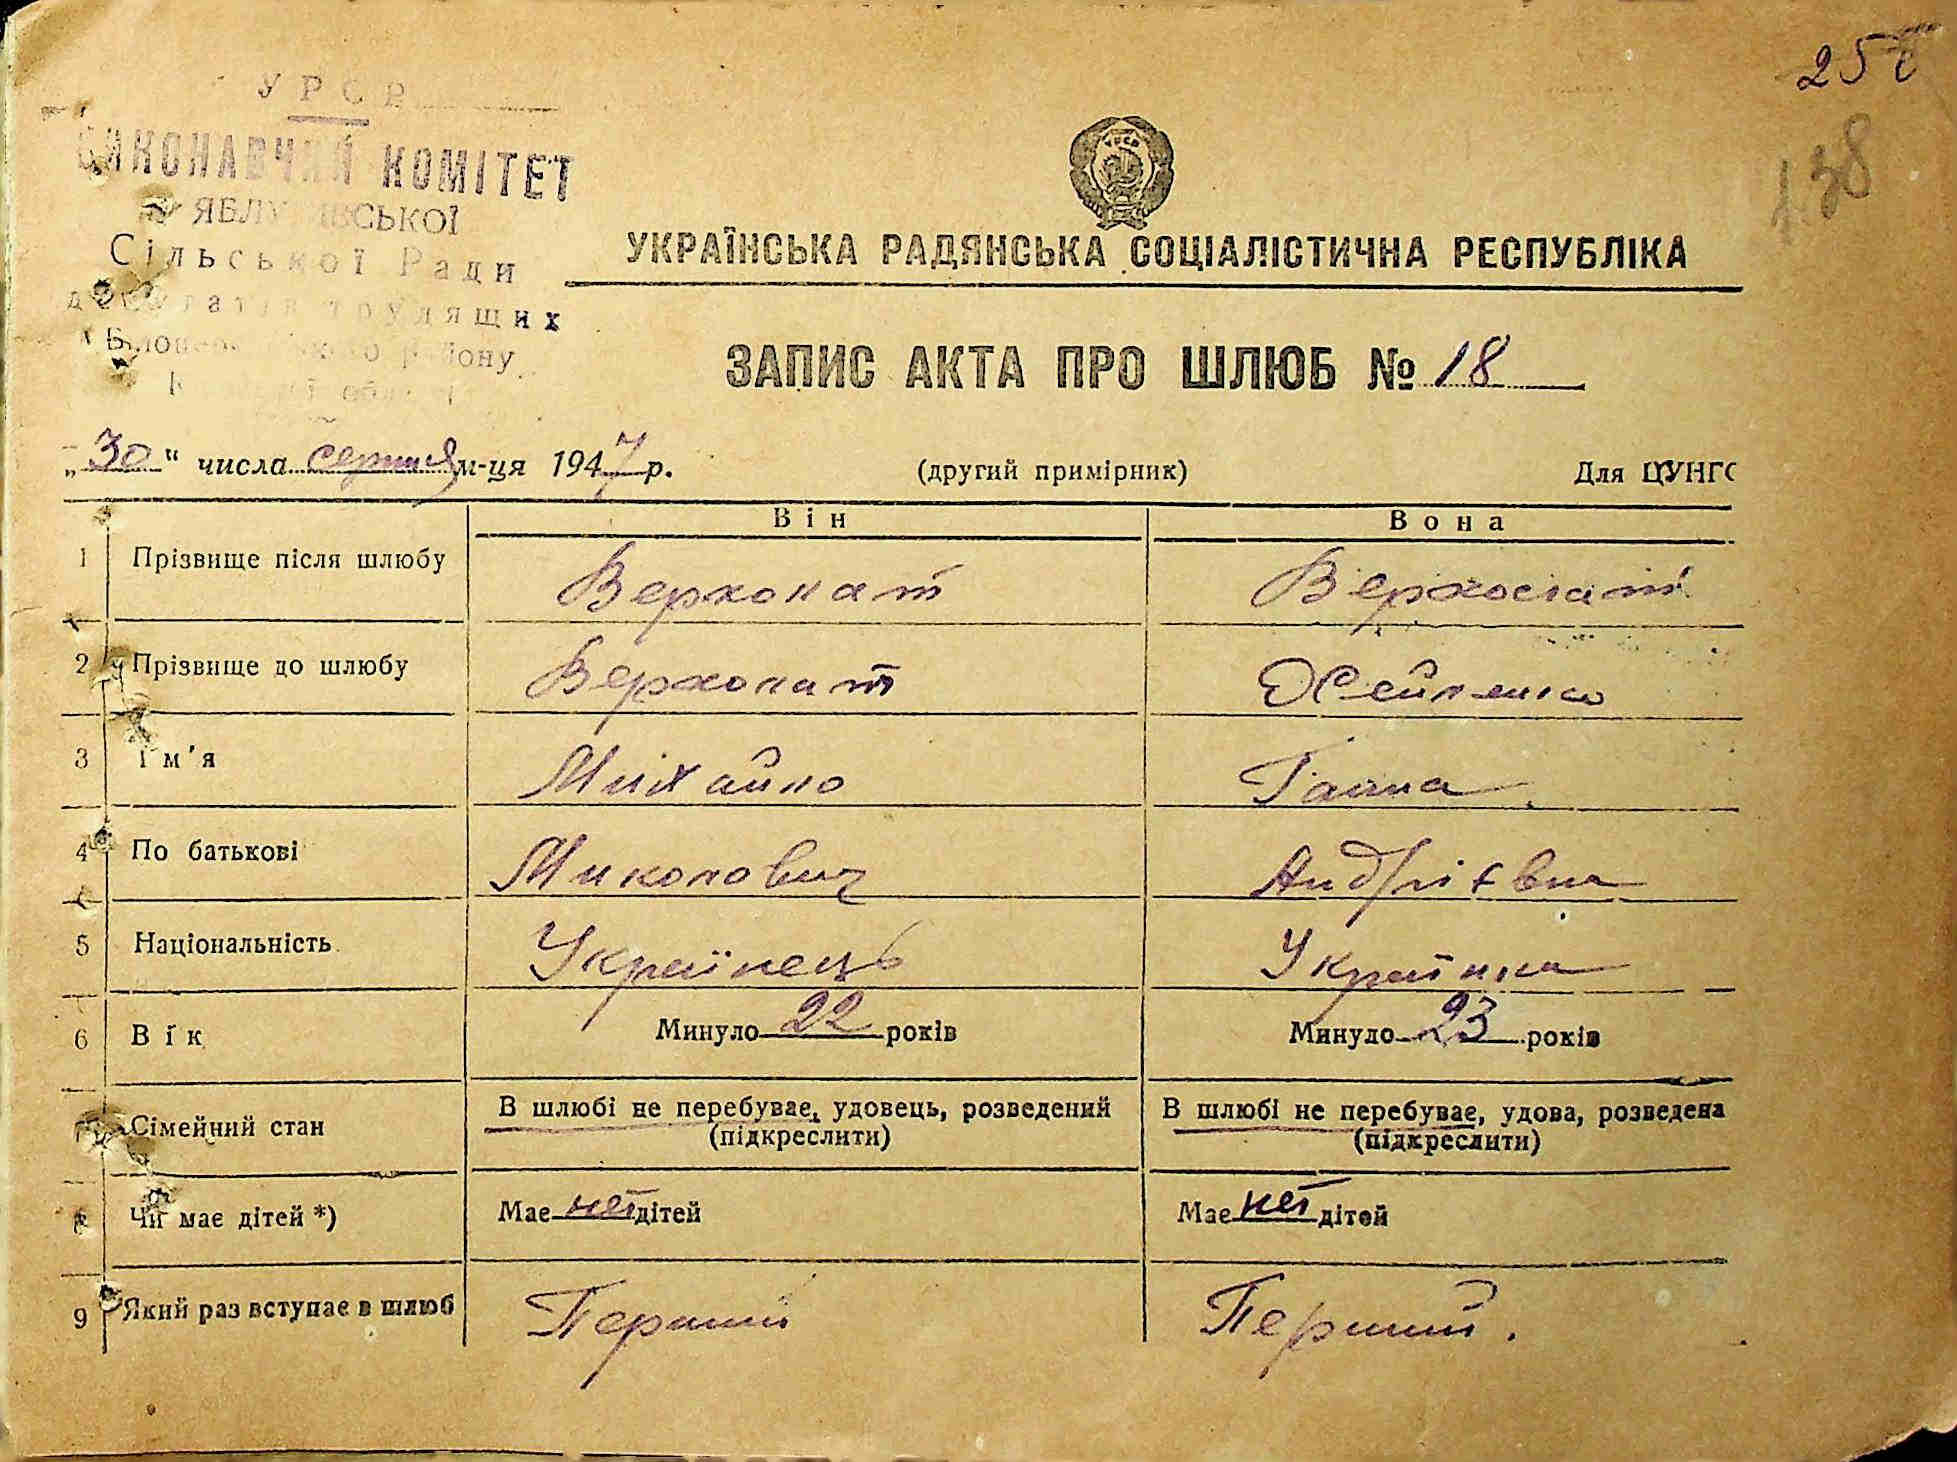 25
138
УРСР
ВИКОНАВЧИЙ КОМІТЕТ
ЯБЛУНІВСЬКОЇ
Сільської Ради
депутатів трудящих
району
УРСР
УКРАЇНСЬКА РАДЯНСЬКА СОЦІАЛІСТИЧНА РЕСПУБЛІКА
ЗАПИС АКТА ПРО ШЛЮБ № 18
„30" числа серпня м-ця 1947 р. (другий примірник) Для ЦУНГС
Він Вона
1 Прізвище після шлюбу Верхопат Верхопат
2 Прізвище до шлюбу Верхопат
3 Ім'я Михайло Ганна
4 По батькові Миколович Андріївна
5 Національність Українець Українка
6 Вік Минуло 22 років Минуло 23 років
7 Сімейний стан В шлюбі не перебуває, удовець, розведений В шлюбі не перебуває, удова, розведена
(підкреслити) (підкреслити)
8 Чи має дітей *) Має нет дітей Має нет дітей
9 Який раз вступає в шлюб Перший Перший.